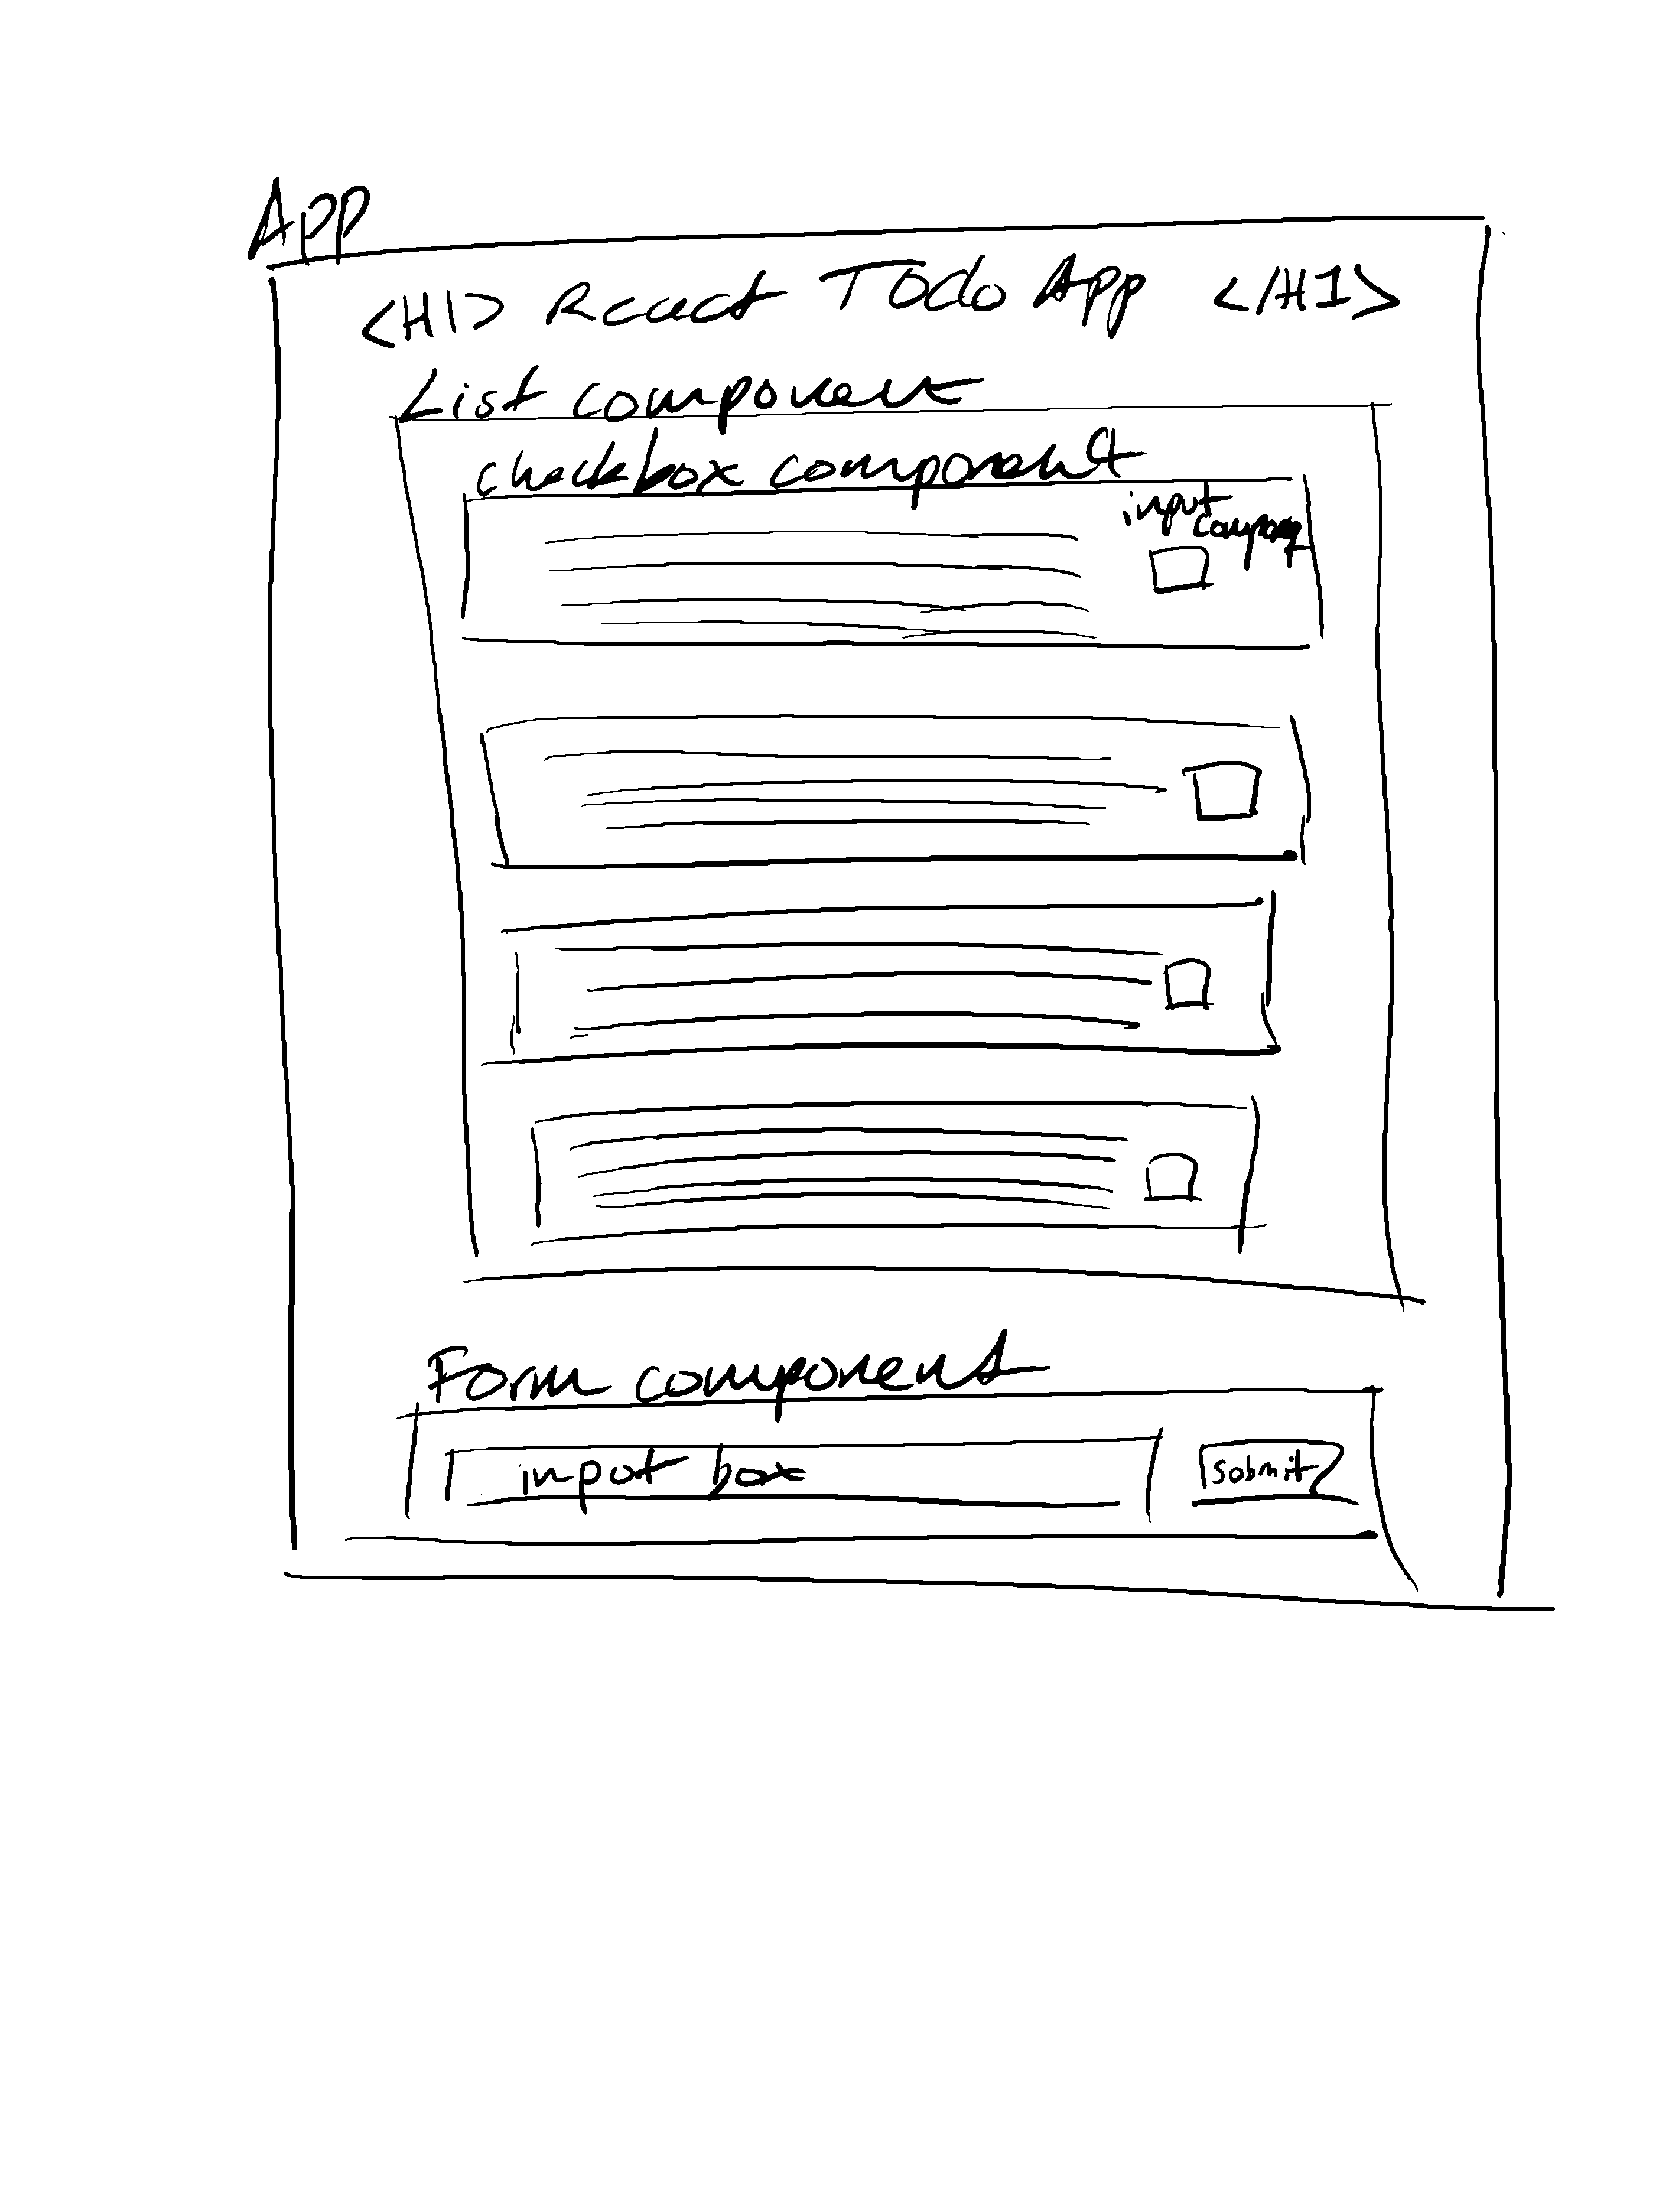 App
<H1> React Todo App </H1>
List component
checkbox component
input
Form component
input box
submit